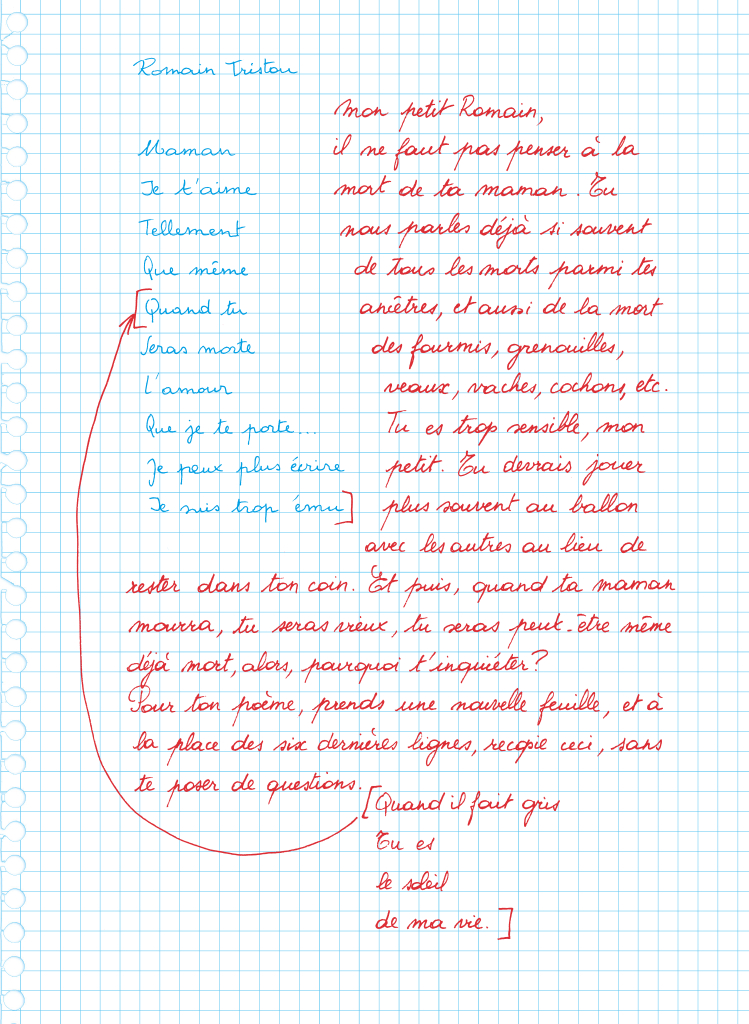 Romain Tristou
Maman
Je t'aime
Tellement
Que même
[Quand tu
Seras morte
L'amour
Que je te porte...
Je peux plus écrire
Je suis trop ému]
Mon petit Romain,
il ne faut pas penser à la
mort de ta maman. Tu
nous parles déjà si souvent
de tous les morts parmi tes
ancêtres, et aussi de la mort
des fourmis, grenouilles,
veaux, vaches, cochons, etc.
Tu es trop sensible, mon
petit. Tu devrais jouer
plus souvent au ballon
avec les autres au lieu de
rester dans ton coin. Et puis, quand ta maman
mourra, tu seras vieux, tu seras peut-être même
déjà mort, alors, pourquoi t'inquiéter?
Pour ton poème, prends une nouvelle feuille, et à
la place des six dernières lignes, recopie ceci, sans
te poser de questions.
[Quand il fait gris
Tu es
le soleil
de ma vie.]